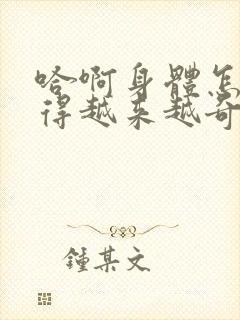 哈啊身體怎
得越来越奇
鍾某文